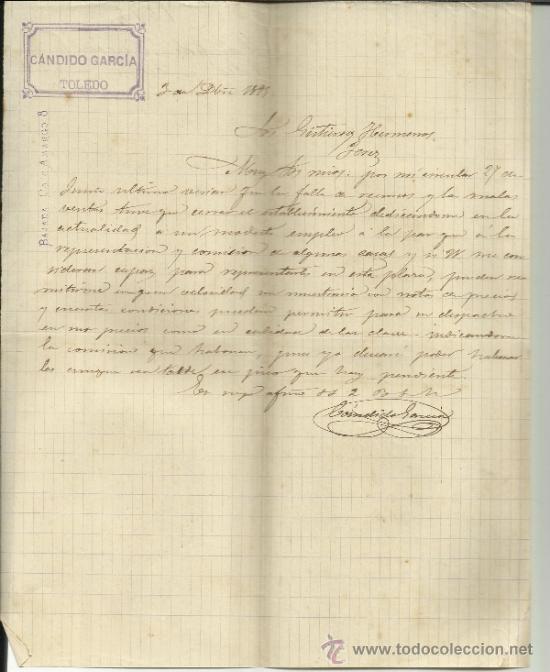 CÁNDIDO GARCÍA
TOLEDO
Bajada
3 de 189
Sres Gutierrez Hermanos
Jerez
Muy Sres mios: por mi circular 27 de
Junio ultimo verian que la falta de recursos y las malas
ventas tuve que cerrar el establecimiento dedicandome en la
actualidad a un modesto empleo á la par que á la
representacion y comision de algunas casas y si W. me con
sideran capaz para representarles en esta plaza, pueden re
mitirme en gran velocidad un muestrario con notas de precios
y cuantas condiciones puedan permitir para su despacho
en sus precios como en calidad de las clases indicandome
la comision que habonan, pues yo desearé poder
les aunque sea el pico que hay pendiente
Es suyo afmo SS 2 B S M
Cándido García
www.todocoleccion.net